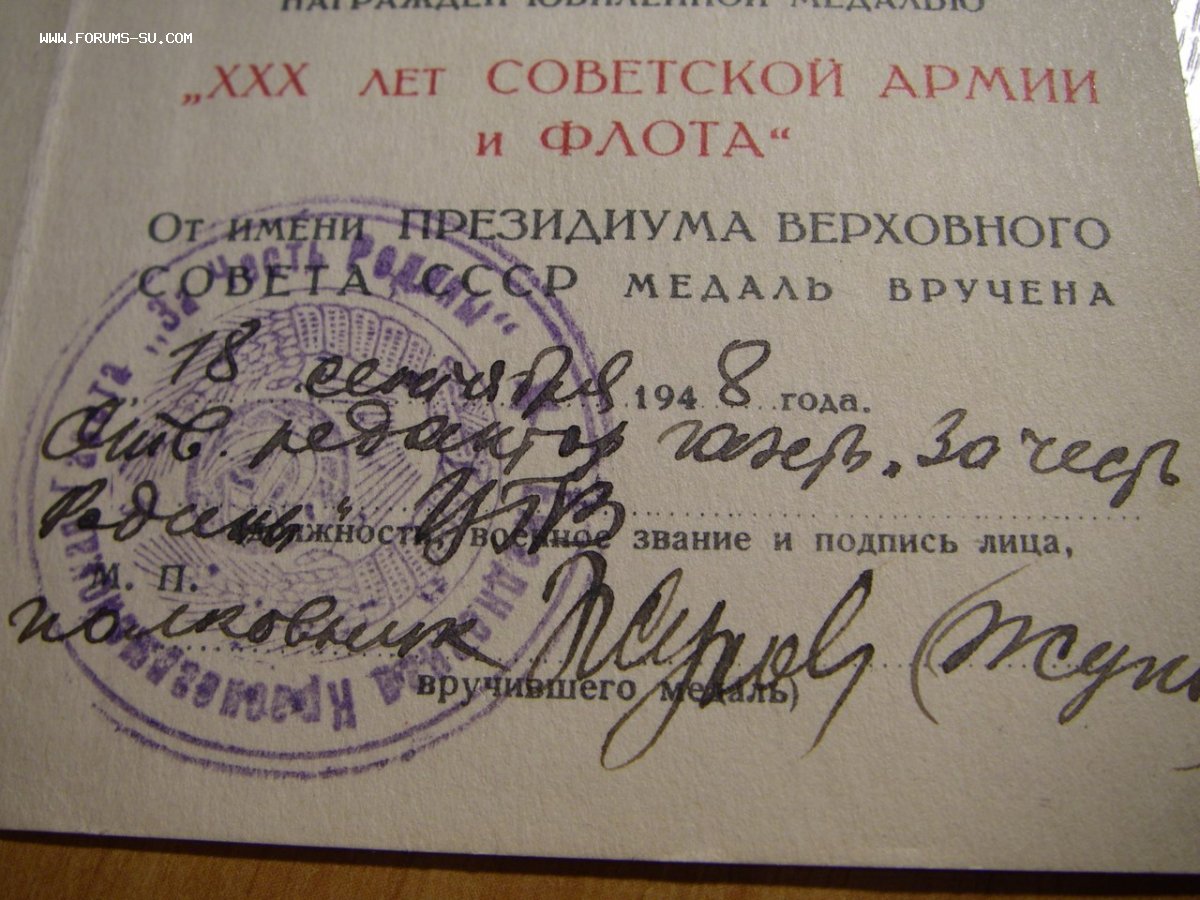 WWW.FORUMS-SU.COM
НАГРАЖДЕН ЮБИЛЕЙНОЙ МЕДАЛЬЮ
„XXX ЛЕТ СОВЕТСКОЙ АРМИИ
И ФЛОТА“
От имени ПРЕЗИДИУМА ВЕРХОВНОГО
СОВЕТА СССР МЕДАЛЬ ВРУЧЕНА
18 сентября 1948 года.
Отв. редактор газеты „За честь
Родины“ ЦГВ
(должность, военное звание и подпись лица,
М. П.
полковник
вручившего медаль)
„За честь Родины“